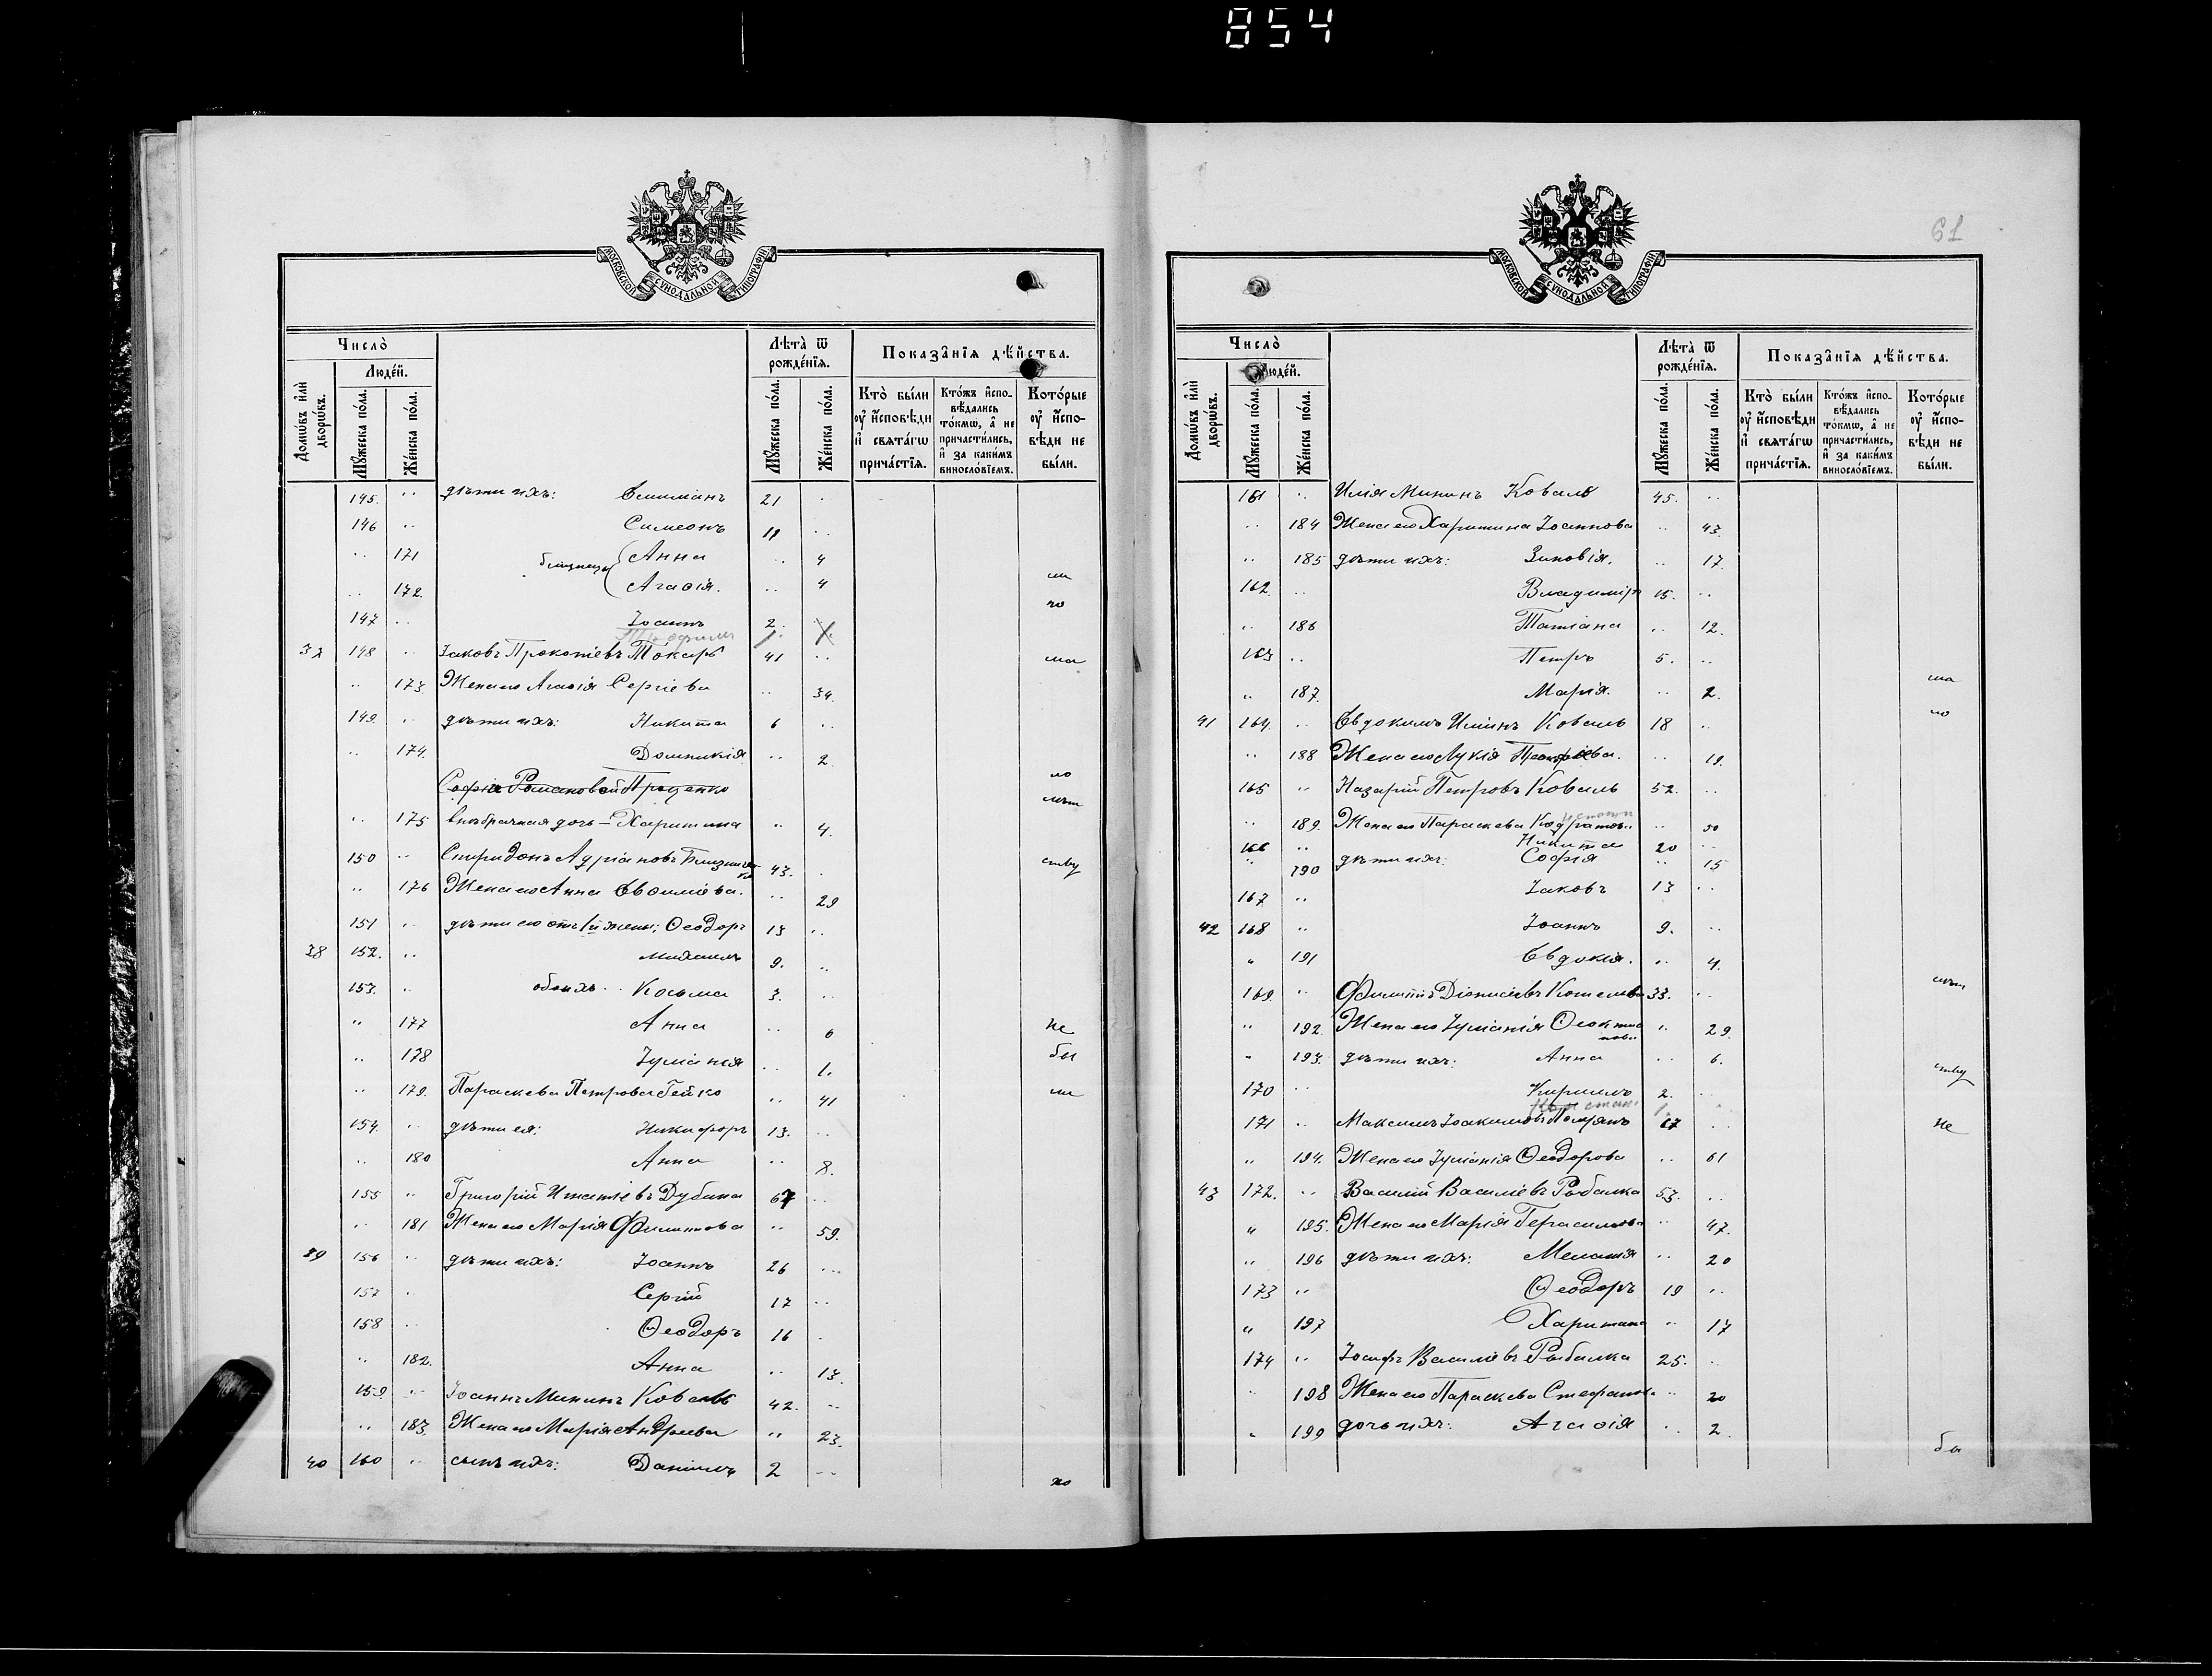 854
МОСКОВСКОЙ СѴНОДАЛЬНОЙ ТИПОГРАФІИ
Число̀
Лѣта̀ ѿ рожде́нїѧ.
Показа̂нїѧ дѣ́йства.
Домѡ́въ и҆лѝ дворѡ́въ.
Люде́й.
Мꙋ́жеска по́ла.
Же́нска по́ла.
Мꙋ́жеска по́ла.
Же́нска по́ла.
Кто̀ бы́ли ᲂу҆ и҆́сповѣди и҆ свѧта́гѡ прича́стїѧ.
Кто́жъ и҆спо-вѣ́дались то́кмѡ, а҆ не причасти́лись, и҆ за каки́мъ виносло́вїемъ.
Кото́рые ᲂу҆ и҆́спо-вѣди не бы́ли.
145. " дѣти ихъ: 21 "
146 " Симеонъ 11 "
" 171 близнецы Анна " 4
" 172. Агафія. " 4 ли
по
147 " Іоаннъ 2 "
37 148 " Іаковъ Прокопіевъ Токарь 41 " ма
" 173. Жена его Агафія Сергіева " 34.
149. " дѣти ихъ: Никита 6 "
" 174. Домникія " 2
Софія Романовой Проценко ло
лѣт
" 175 внѣбрачная дочь – Харитина " 4.
150 " Спиридонъ Адріановъ 43. " ству
" 176 Жена его Анна Евфиміева. " 29
151 " дѣти его отъ 1й жены: Ѳеодоръ 13 "
38 152. " Михаилъ 9. "
153. " обоихъ " Косьма 3. "
" 177 Анна " 6 не
" 178 Іуліанія " 1. бы
" 179. Параскева Петрова Гейко " 41 ли
154. " дѣти ея: Никифоръ 13. "
" 180 Анна " 8.
155 " Григорій Игнатіевъ Дубина 67 "
" 181 Жена его Марія Филиппова " 59.
39 156 " дѣти ихъ: Іоаннъ 26 "
157 " Сергій 17 "
158 " Ѳеодоръ 16 "
" 182. Анна " 13.
159. " Іоаннъ Мининъ Коваль 42. "
" 183. Жена его Марія Андреева " 23.
40 160 " сынъ ихъ: Даніилъ 2 " по
61
МОСКОВСКОЙ СѴНОДАЛЬНОЙ ТИПОГРАФІИ
Число̀
Лѣта̀ ѿ рожде́нїѧ.
Показа̂нїѧ дѣ́йства.
Домѡ́въ и҆лѝ дворѡ́въ.
Люде́й.
Мꙋ́жеска по́ла.
Же́нска по́ла.
Мꙋ́жеска по́ла.
Же́нска по́ла.
Кто̀ бы́ли ᲂу҆ и҆́сповѣди и҆ свѧта́гѡ прича́стїѧ.
Кто́жъ и҆спо-вѣ́дались то́кмѡ, а҆ не причасти́лись, и҆ за каки́мъ виносло́вїемъ.
Кото́рые ᲂу҆ и҆́спо-вѣди не бы́ли.
161 " Илія Мининъ Коваль 45. "
" 184 Жена его Харитина Іоаннова " 43.
" 185 дѣти ихъ: Зиновія. " 17.
162. " Владиміръ 15. "
" 186 Татіана " 12.
163 " Петръ 5. "
" 187. Марія. " 2. ма
ло
41 164. " Евдокимъ Иліинъ Коваль 18 "
" 188 Жена его Лукія " 19.
165 " Назарій Петровъ Коваль 52. "
" 189. Жена его Параскева Кодратова " 50
166 " Никита 20 "
" 190 дѣти ихъ: Софія " 15
167 " Іаковъ 13 "
42 168 " Іоаннъ 9. "
" 191 Евдокія. " 4.
лѣт
169. " Филиппъ Діонисіевъ 33. "
" 192. Жена его Іуліанія Ѳеоктистова " 29.
" 193. дѣти ихъ: Анна " 6. ству
170 " Кириллъ 2. "
171 " Максимъ Іоакимовъ 67 " не
" 194. Жена его Іуліанія Ѳеодорова " 61
43 172. " Василій Василіевъ Рыбалка 53. "
" 195. Жена его Марія Герасимова " 47.
" 196 дѣти ихъ: Мелатія " 20
173 " Ѳеодоръ 19 "
" 197 Харитина " 17
174 " Іосифъ Василіевъ Рыбалка 25. "
" 198 Жена его Параскева Стефанова " 20
" 199 дочь ихъ: Агафія " 2. бы